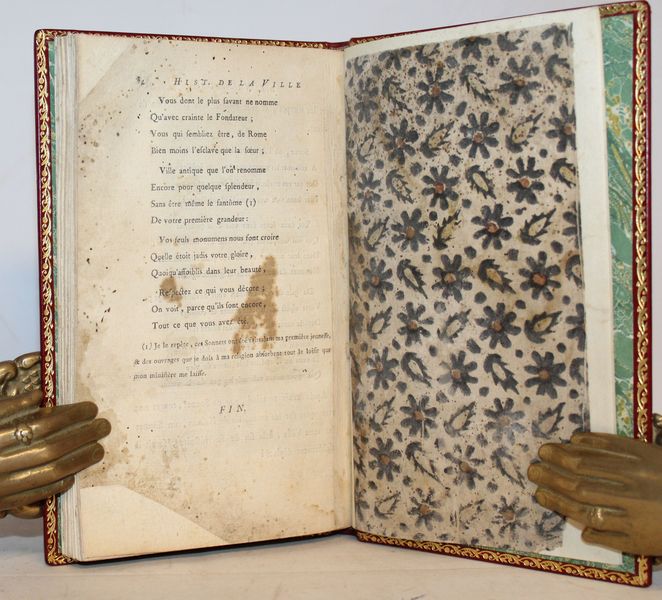 HIST. DE LA VILLE
Vous dont le plus savant ne nomme
Qu'avec crainte le Fondateur ;
Vous qui sembliez être, de Rome
Bien moins l'esclave que la sœur ;
Ville antique que l'on renomme
Encore pour quelque splendeur,
Sans être même le fantôme (1)
De votre première grandeur :
Vos seuls monumens nous font croire
Quelle étoit jadis votre gloire,
Quoiqu'affoiblis dans leur beauté,
Respectez ce qui vous décore ;
On voit, parce qu'ils sont encore,
Tout ce que vous avez été.
(1) Je le repète, ces Sonnets ont été dans ma première jeunesse,
& des ouvrages que je dois à ma religion absorbent tout le loisir que
mon ministère me laisse.
FIN.